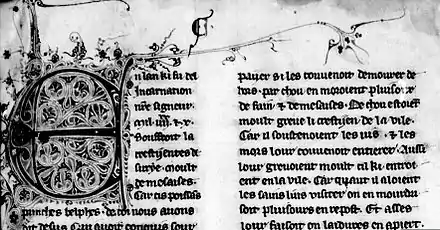 En lan ki fu del
Incarnation
nr̄e signeur
mil. iiii. & x.
Souffroit la
crestijentes de
surye. moult
de mesaises.
Car cis possass
princhés telphes. de coi nous auons
dit desus. Qui auoit
paijer si les couuenoit demourer de
hors. par chou en moroient plusors
de fain & de mesaises. De chou estoiēt
moult greue li crestijen de la vile.
Car il soustenoient les uis. & les
mors lour couuenoit enterer. Aussi
lour greuoient moult cil ki entroi
ent en la vile. Car quant il aloient
les sains lius visiter on en mourdri
soit plusours en repost. Et asses
lour faisoit on laidures en apiert